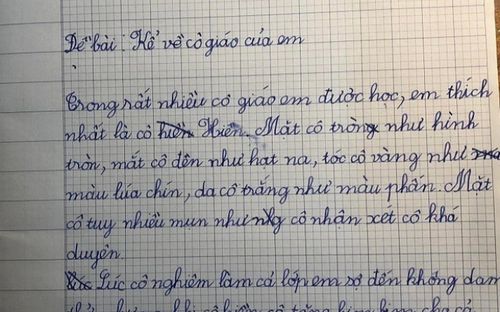 Đề bài: Kể về cô giáo của em
Trong rất nhiều cô giáo em được học, em thích
nhất là cô hiền Hiền. Mặt cô tròng như hình
tròn, mắt cô đên như hat na, tóc cô vàng như
màu lúa chín, da cô trắng như màu phấn. Mặt
cô tuy nhiều mun như cô nhận xét cô khá
duyên.
Lúc cô nghiêm lắm cả lớp em sợ đến không dam